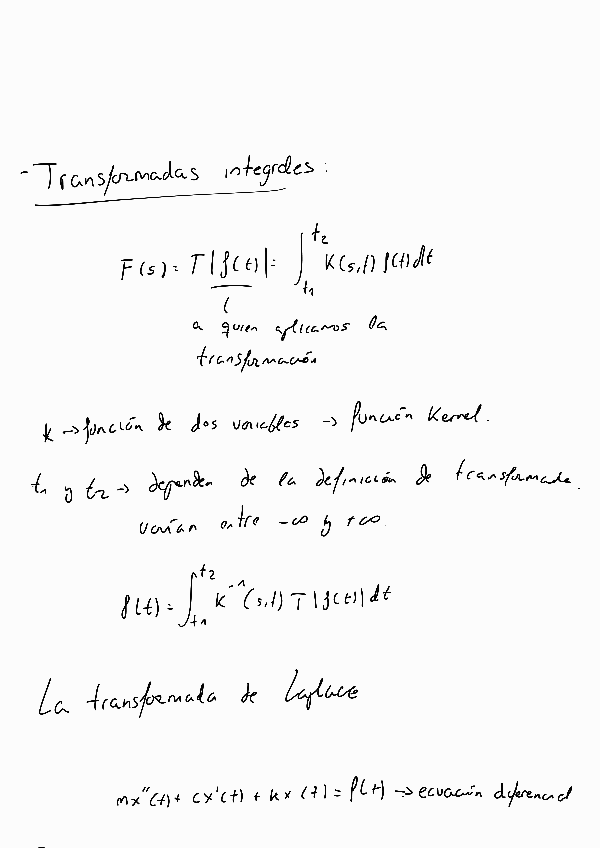 - Transformadas integrales:
F(s) = T|f(t)| = ∫_{t1}^{t2} K(s,t) f(t) dt
a quien aplicamos la
transformación
k → función de dos variables → función Kernel.
t1 y t2 → dependen de la definición de transformada.
varían entre -∞ y +∞.
f(t) = ∫_{t1}^{t2} K^{-1}(s,t) T|f(t)| dt
La transformada de Laplace
mx''(t) + cx'(t) + kx(t) = f(t) → ecuación diferencial